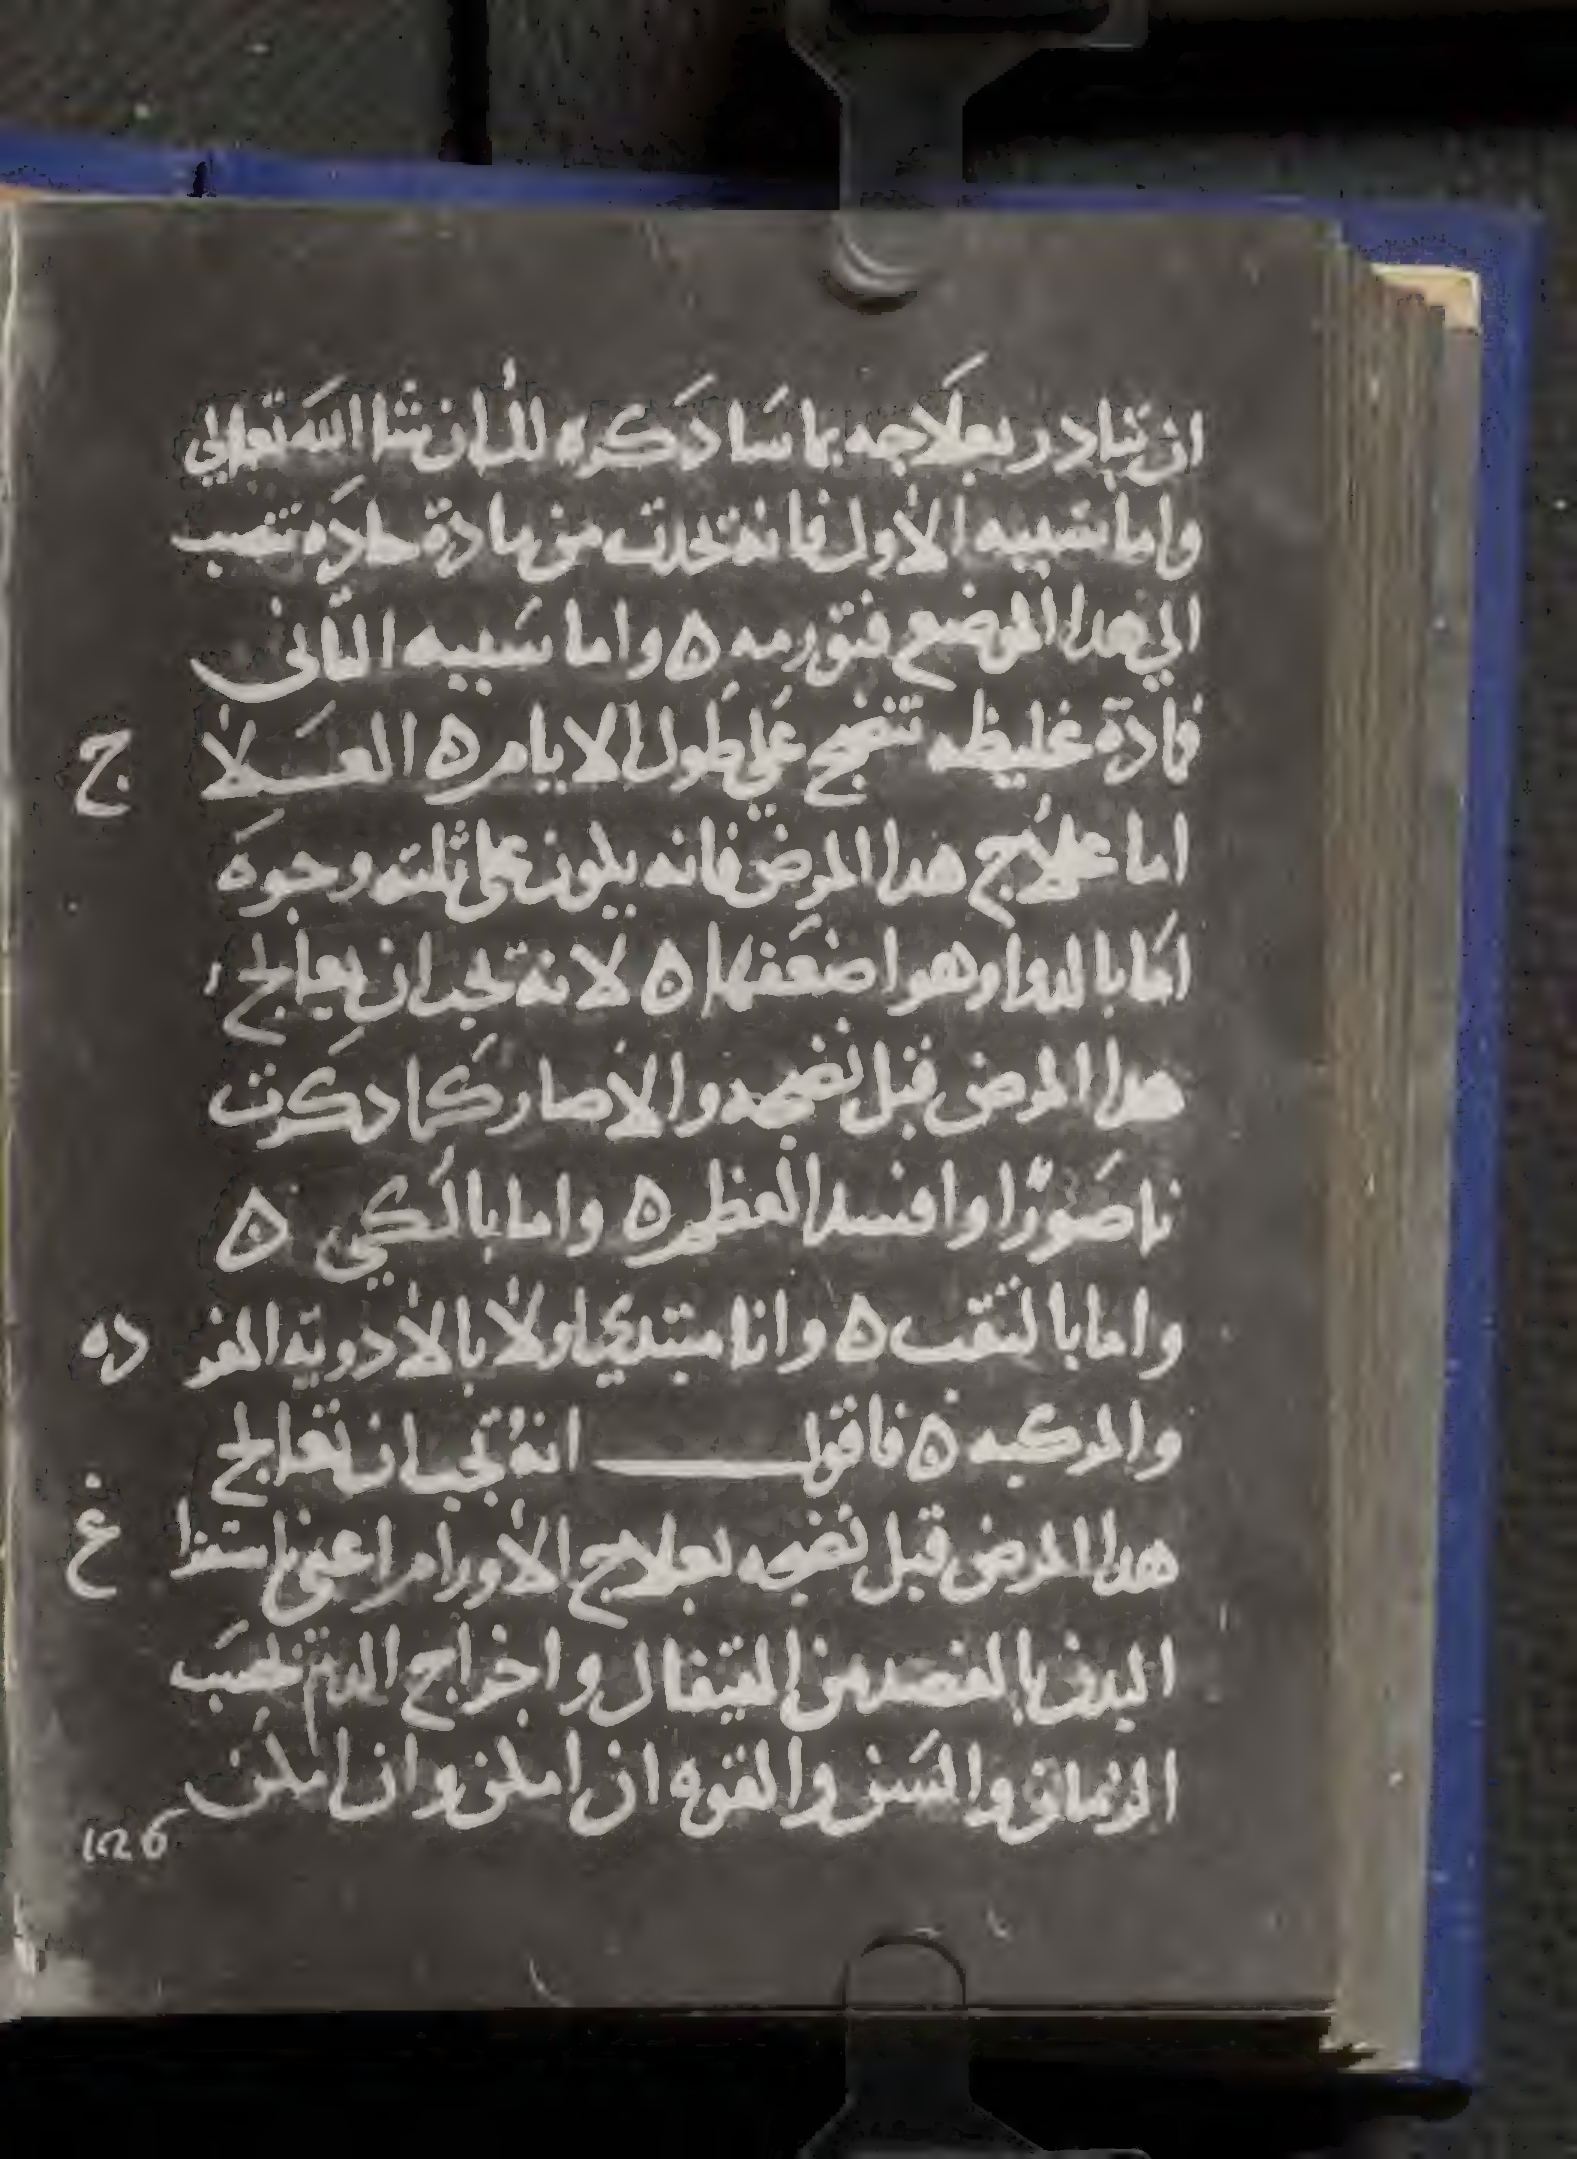 ان تبادر بعلاجه بما ساذكره لك ان شا الله تعالى
واما سببيه الاول فانه تحدث من مادة حاده تنصب
الي هدا الموضع فتورمه ٥ واما سببيه الثاني
فمادة غليظه تنضج علي طول الايام ٥ العـلا ج
اما علاج هدا المرض فانه يكون على ثلثه وجوه
اما بالدوا وهو اضعفها ٥ لانه تجب ان يعالج
هدا المرض قبل نضجه والا صار كما دكرت
ناصورا وافسد العظم ٥ واما بالكي ٥
واما بالثقب ٥ وانا مبتدي اولا بالادوية المفر ده
والمركبه ٥ فاقول انه تجب ان تعالج
هدا المرض قبل نضجه بعلاج الاورام اعني باستفرا غ
البدن بالفصد من القيفال واخراج الدم تحسب
الزمان والسن والقوه ان امكن وان امكن
126